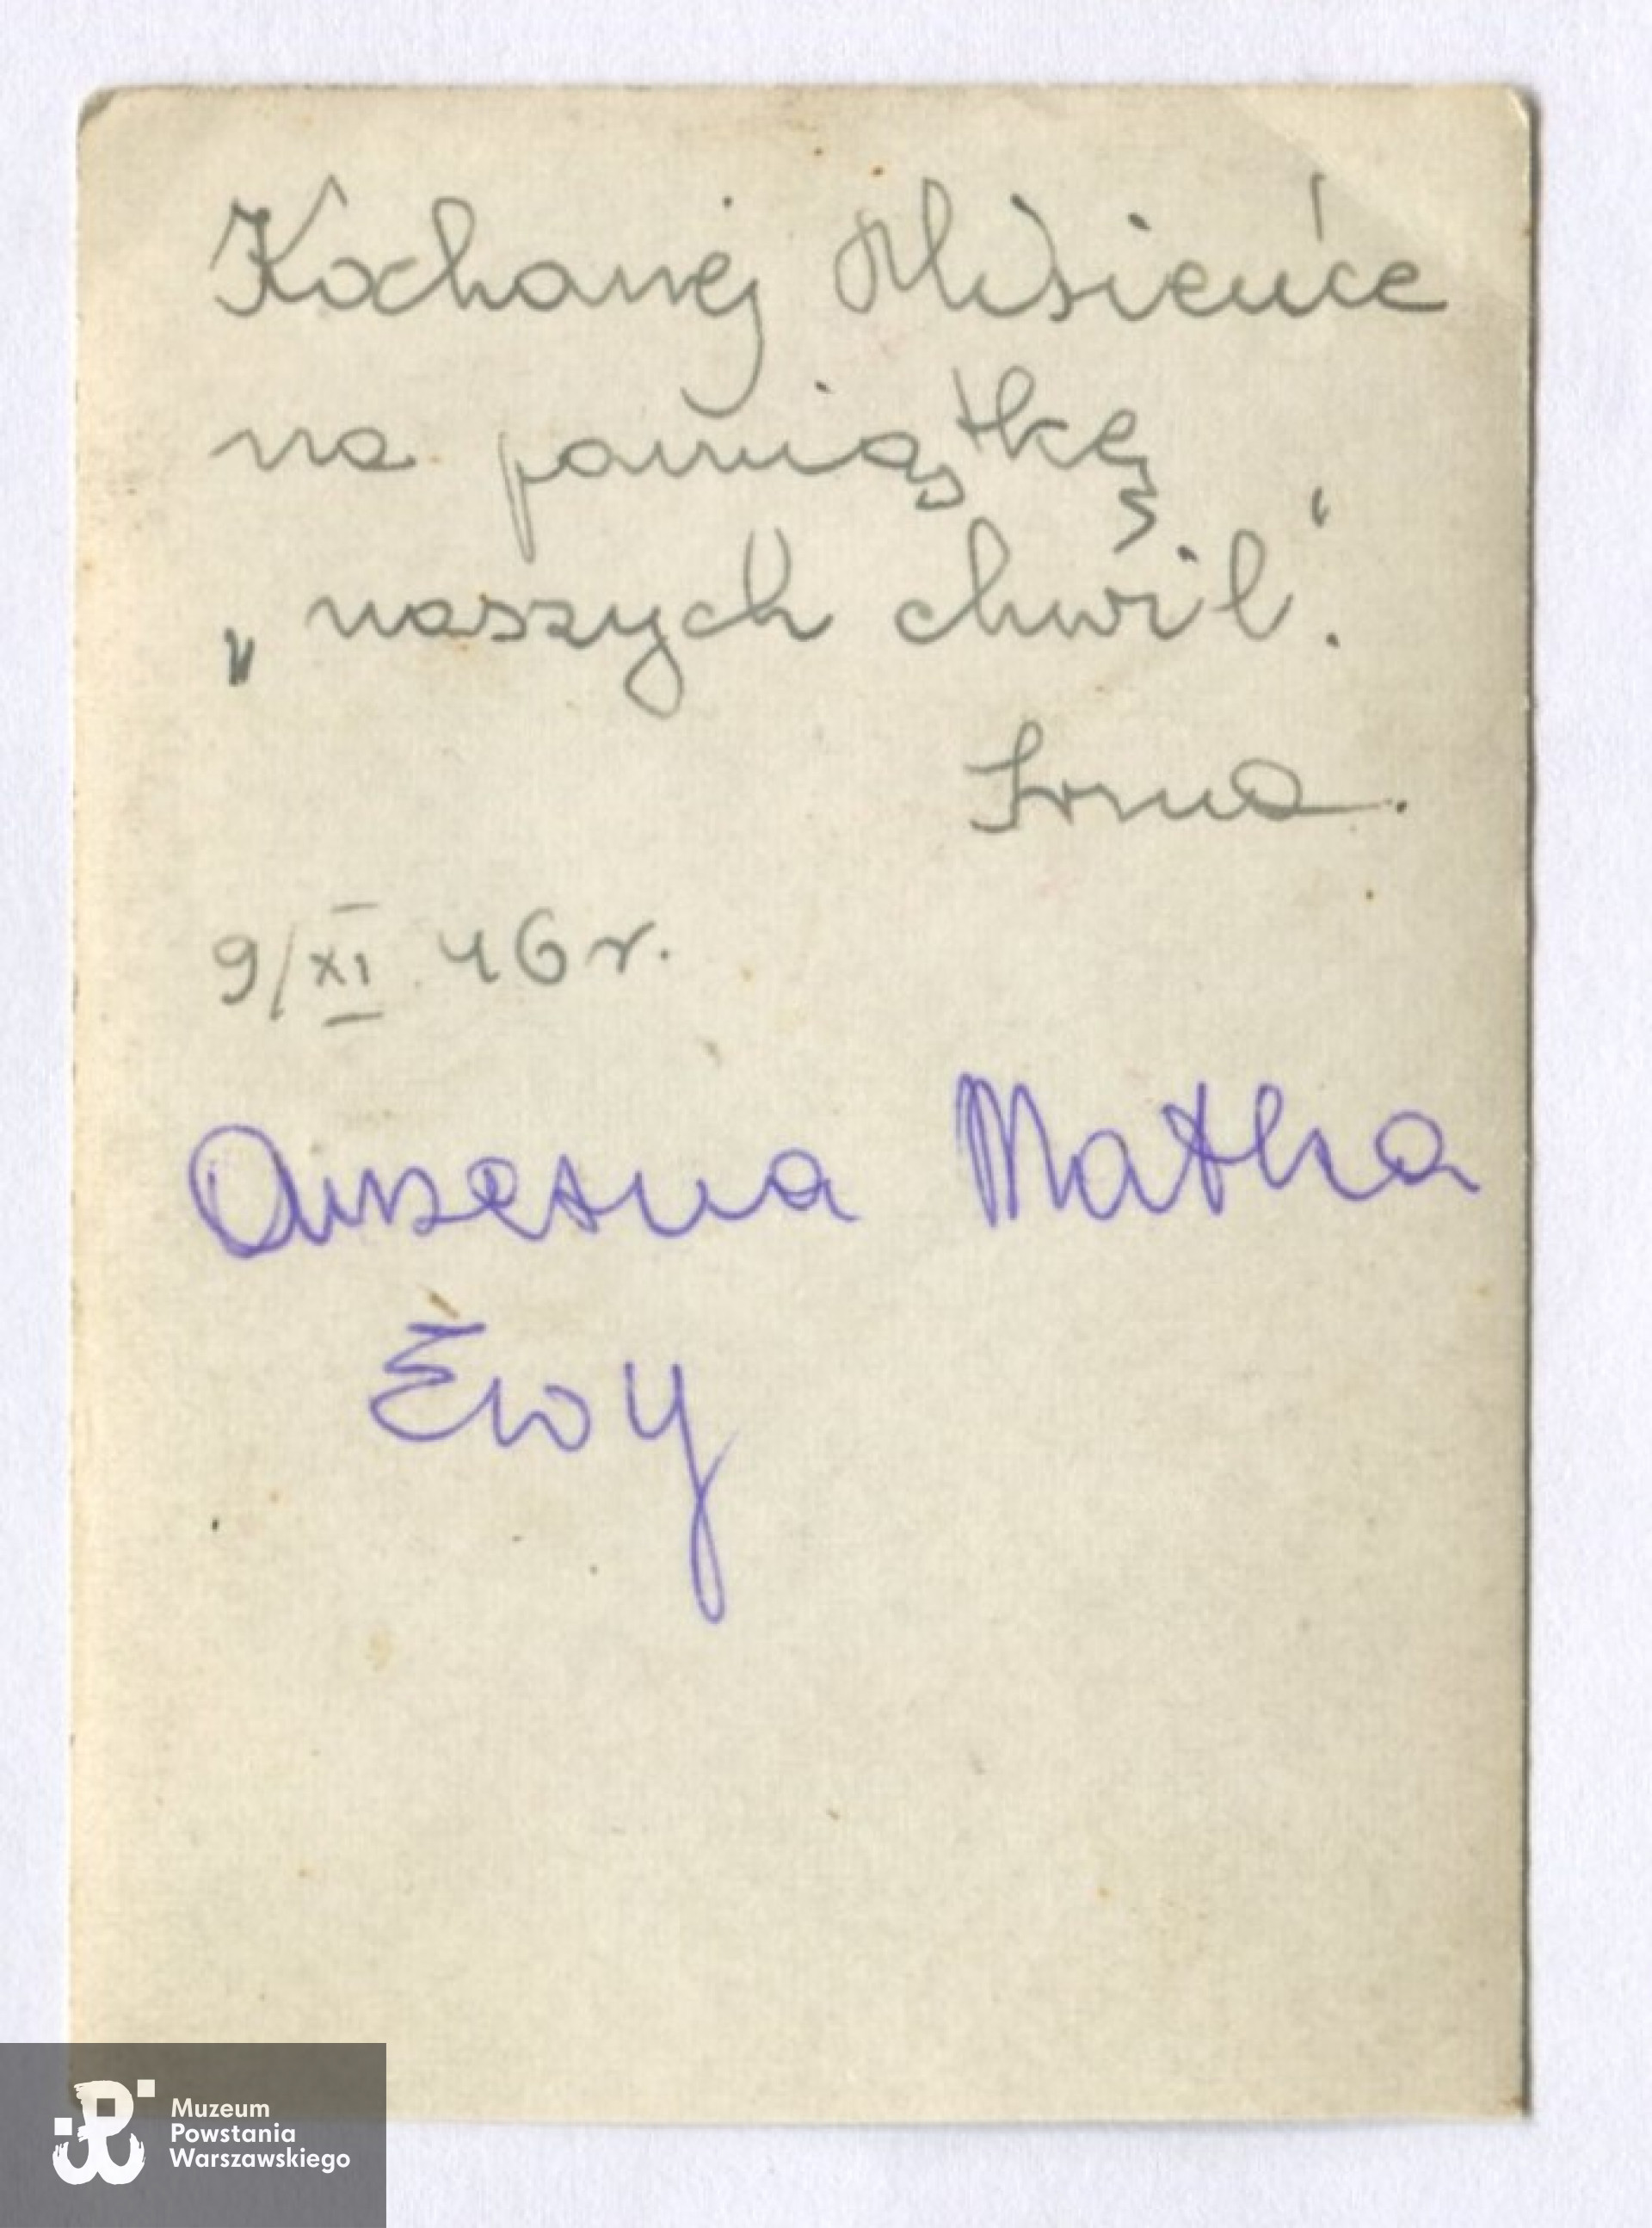 Kochanej Misieńce
na pamiątkę
„naszych chwil".
Irma.
9/XI 46 r.
Chrzestna Matka
Ewy
Muzeum
Powstania
Warszawskiego